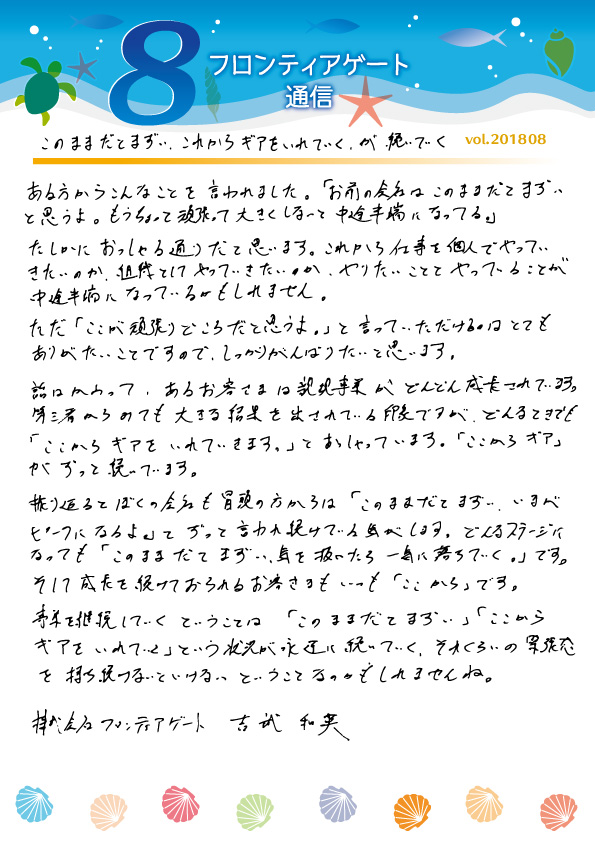 8
フロンティアゲート
通信
このままだとまずい、これからギアをいれていく、が続いていく
vol.201808
ある方からこんなことを言われました。「お前の会社はこのままだとまずい
と思うよ。もうちょっと頑張って大きくしないと中途半端になってる。」
たしかにおっしゃる通りだと思います。これから仕事を個人でやってい
きたいのか、組織としてやっていきたいのか、やりたいこととやっていることが
中途半端になっているかもしれません。
ただ「ここが頑張りどころだと思うよ。」と言っていただけるのはとても
ありがたいことですので、しっかりがんばりたいと思います。
話はかわって、あるお客さまは既存事業がどんどん成長されています。
第三者からみても大きな結果を出されている印象ですが、どんなときでも
「ここからギアをいれていきます。」とおっしゃっています。「ここからギア」
がずっと続いています。
振り返るとぼくの会社も冒頭の方からは「このままだとまずい、いまが
ピークになるよ。」とずっと言われ続けている気がします。どんなステージに
なっても「このままだとまずい、気を抜いたら一気に落ちていく。」です。
そして成長を続けておられるお客さまもいつも「ここから」です。
事業を継続していくということは「このままだとまずい」「ここから
ギアをいれていく」という状況が永遠に続いていく、それくらいの緊張感
を持ち続けないといけないということなのかもしれませんね。
株式会社フロンティアゲート 吉武 和実